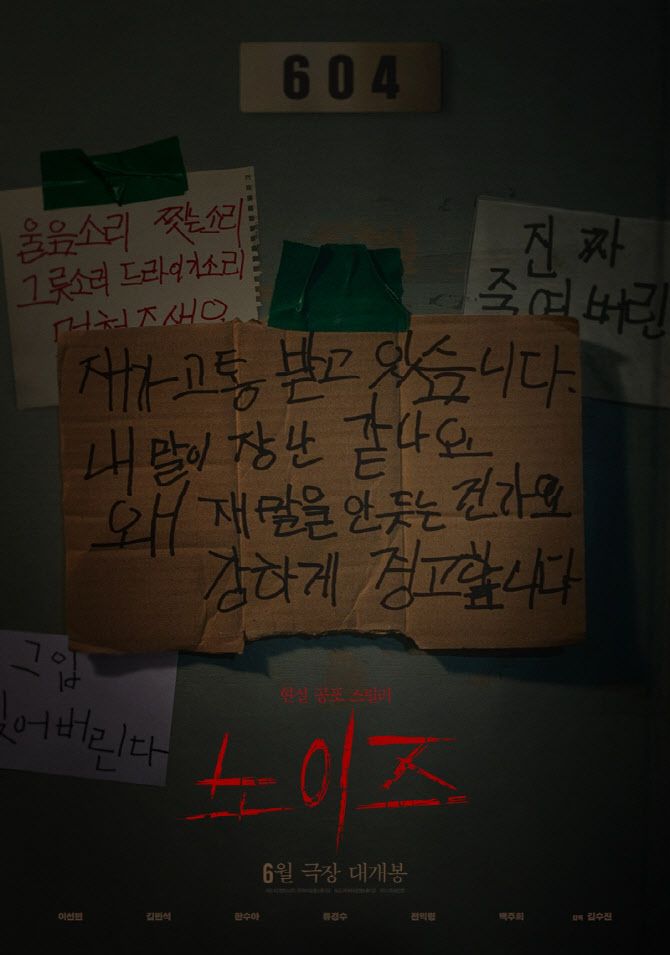 604
울음소리 찟는소리
그릇소리 드라이기소리
멈춰주세요
진짜
죽여버린
재가 고통 받고 있슴니다.
내 말이 장난 같나요
왜 재 말을 안듯는 건가요
강하게 경고합니다
그입
찢어버린다
현실 공포 스릴러
노이즈
6월 극장 대개봉
이선빈 김민석 한수아 류경수 전익령 백주희 감독 김수진